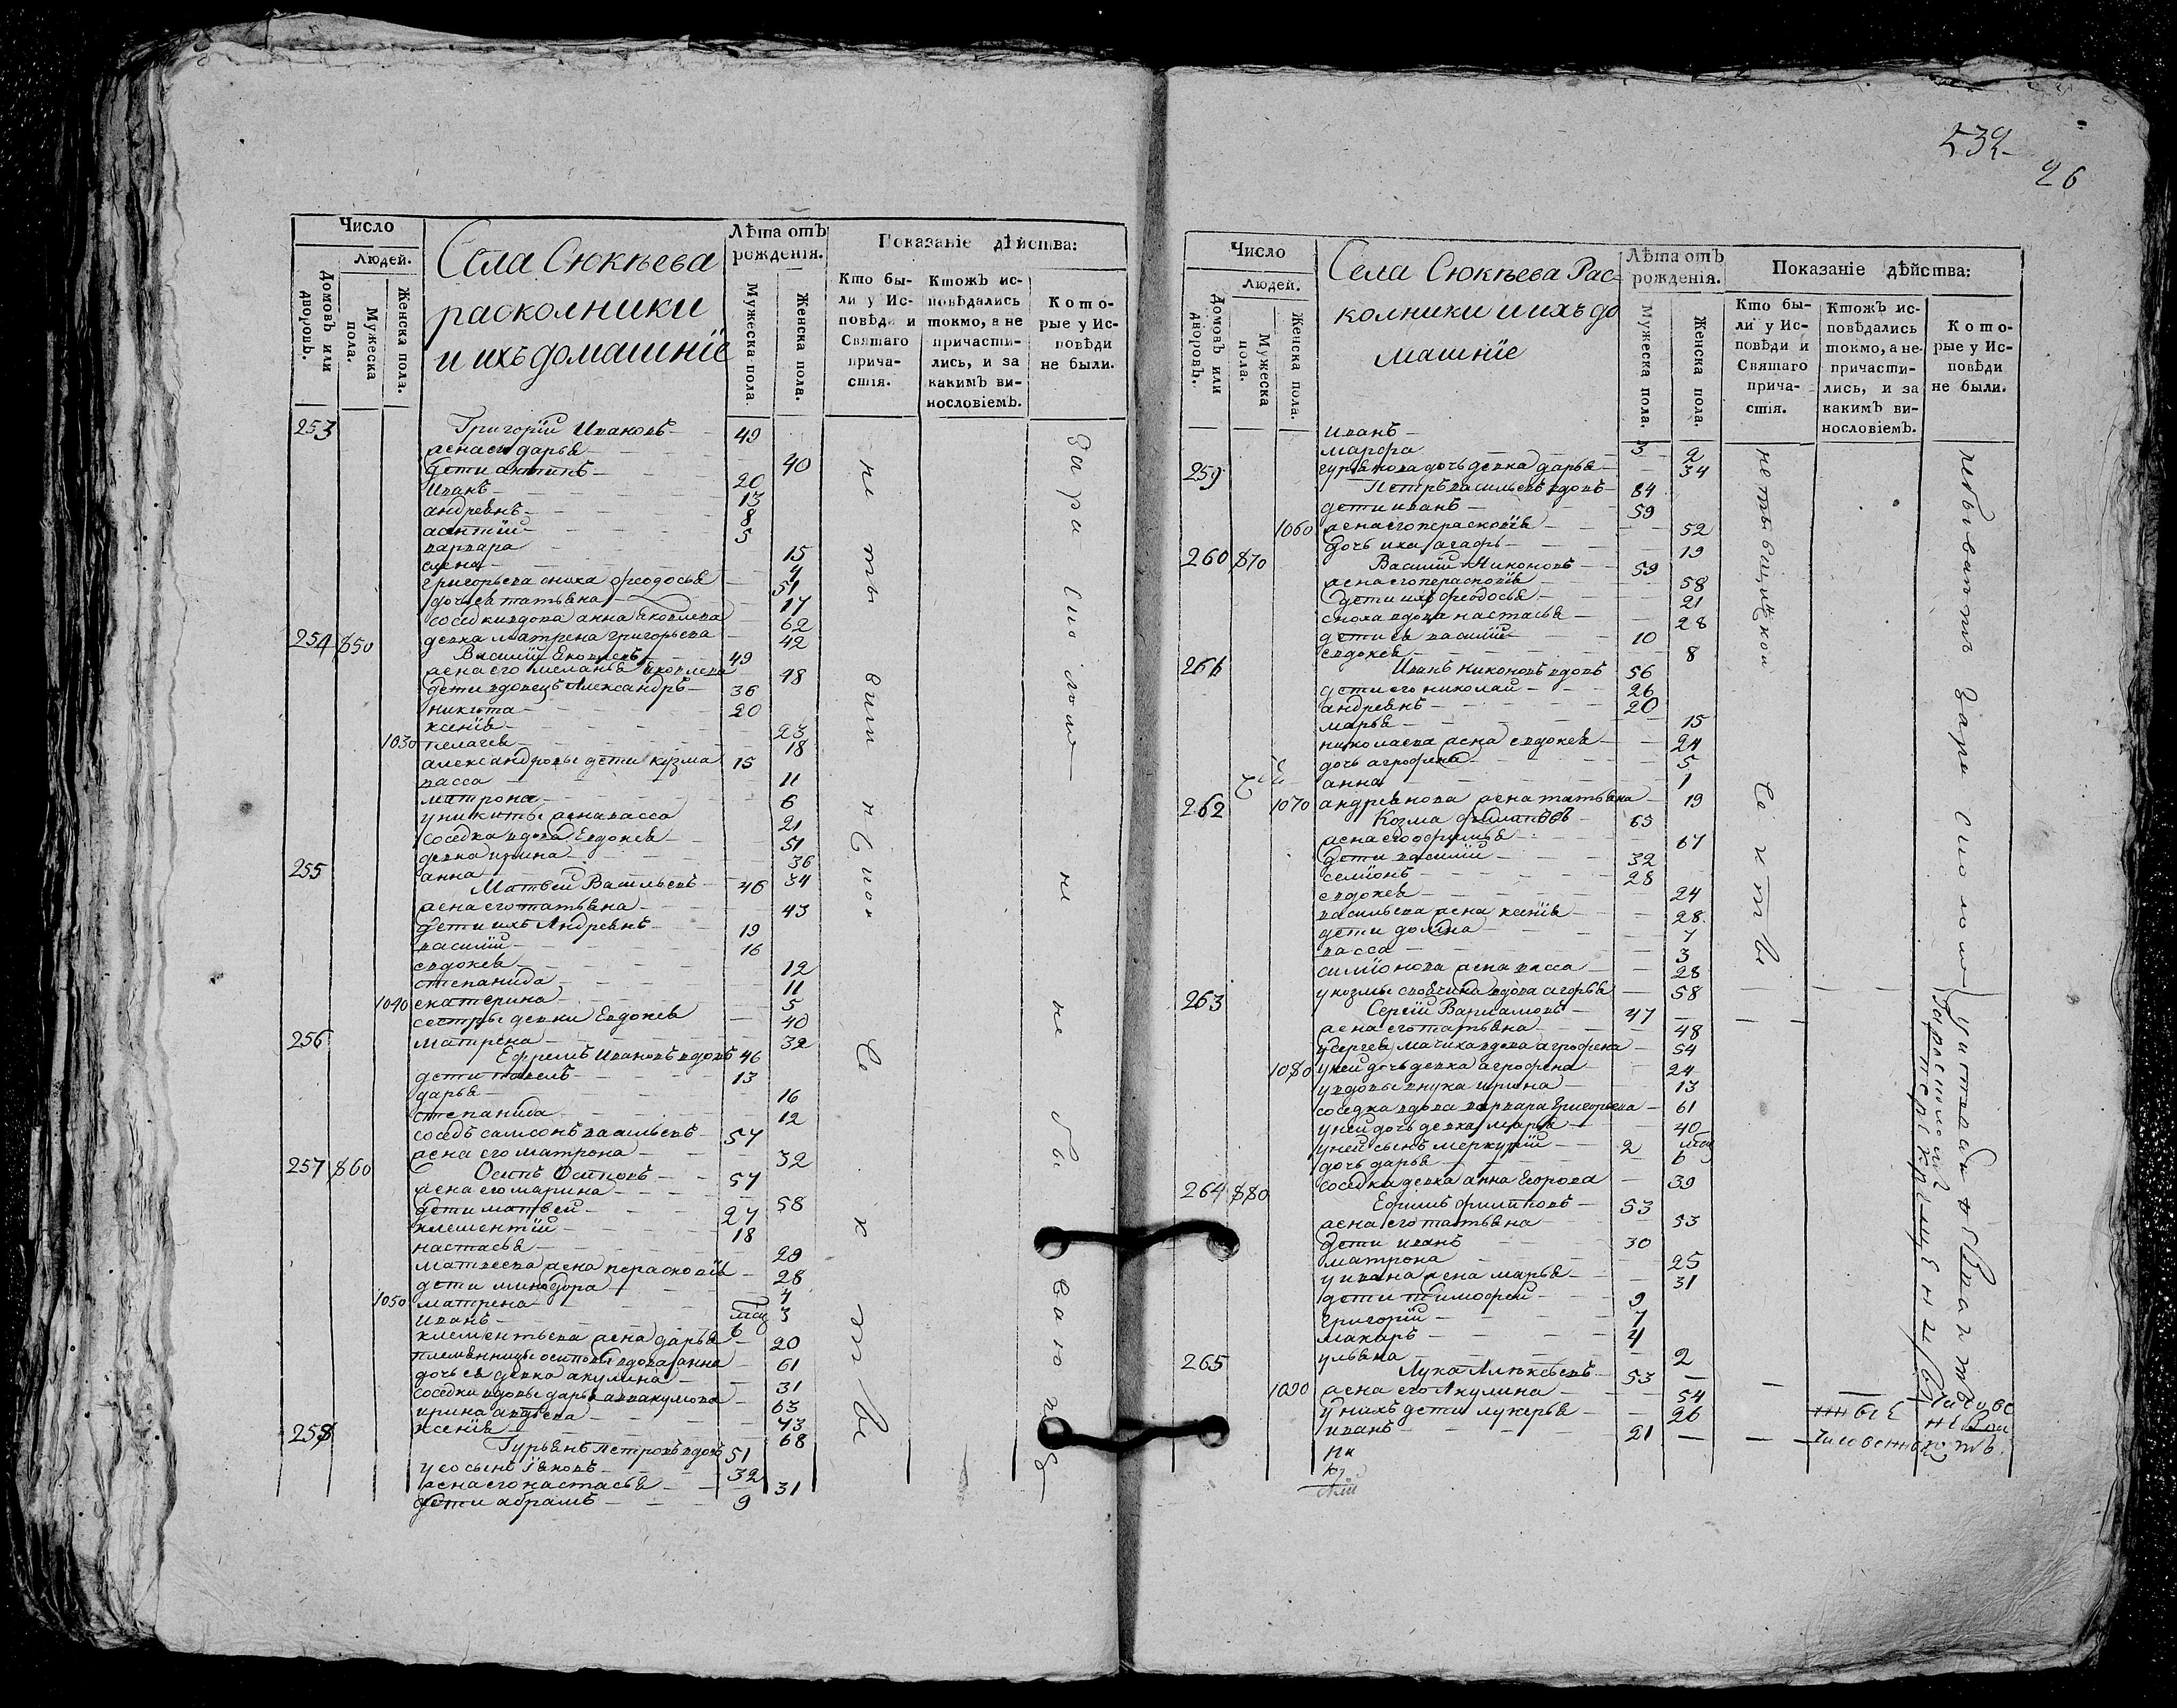 Число
Людей.
Домовъ или дворовъ.
Мужеска пола.
Женска пола.
Села Сюкѣева
расколники
и ихъ домашнїе
Лѣта отъ рожденія.
Мужеска пола.
Женска пола.
Показаніе дѣйства:
Кто были у Исповѣди и Святаго причастія.
Ктожъ исповѣдались токмо, а не причастились, и за какимъ винословіемъ.
Которые у Исповѣди не были.
253 Григорїй Ивановъ 49
жена ево дарья 40
дети антипъ 20
Иванъ 13
андреянъ 8
5
варвара 15
елена
григорьева сноха феодосья 51
дочь ея татьяна 17
соседки вдова анна Яковлева 62
девка матрена григорьева 42
254 850 Василїй Яковлевъ 49
жена его меланья Яковлева 48
дети вдовецъ Александръ 36
никита 20
ксенїя 23
1030 пелагея 18
александровы дети козма 15
васса 11
матрона 6
у никиты жена васса 21
соседка вдова Евдокея 51
девка ирина 36
анна 34
255 Матвей Васильевъ 46
жена его татьяна 43
дети ихъ Андреянъ 19
василїй 16
евдокея 12
степанида 11
1040 екатерина 5
сестры девки Евдокея 40
матрена 32
256 Ефремъ Ивановъ вдовъ 46
дети павелъ 13
дарья 16
степанида 12
соседъ самсонъ васильевъ 57
жена его матрона 32
257 860 Осипъ Осиповъ 57
жена его марина 58
дети матвей 27
клементїй 18
настасья 20
матвеева жена перасковїя 28
дети минодора 4
1050 матрена 3
иванъ 6
клементьева жена дарья 20
племянницы осиповы вдова анна 61
дочь ея девка акулина 31
соседки вдовы дарья аввакумова 63
ирина авдеева 43
ксенїя 68
258 Гурьянъ петровъ вдовъ 51
у ево сынъ Яковъ 32
жена его настасья 31
дети абрамъ 9
За расколомъ не бываютъ
532
26
Число
Людей.
Домовъ или дворовъ.
Мужеска пола.
Женска пола.
Села Сюкѣева Рас=
колники и ихъ до
машнїе
Лѣта отъ рожденія.
Мужеска пола.
Женска пола.
Показаніе дѣйства:
Кто были у Исповѣди и Святаго причастія.
Ктожъ исповѣдались токмо, а не причастились, и за какимъ винословіемъ.
Которые у Исповѣди не были.
иванъ 3
марфа 2
гурьянова дочь девка дарья 34
259 Петръ васильевъ вдовъ 84
дети иванъ 59
1060 жена его перасковїя 52
дочь ихъ агафья 19
260 870 Василїй Никоновъ 59
жена его перасковїя 58
дети ихъ феодосья 21
сноха вдова настасья 28
дети ея василїй 10
евдокея 8
261 Иванъ Никоновъ вдовъ 56
дети его николай 26
андреянъ 20
марья 15
николаева жена евдокея 24
дочь агрофена 5
анна 1
1070 андреянова жена татьяна 19
262 Козма 63
жена его 67
дети василїй 32
семїонъ 28
евдокея 24
васильева жена ксенїя 28
дети домна 7
васса 3
симїонова жена васса 28
у козмы вдова 58
263 Сергїй Варламовъ 47
жена его татьяна 48
у сергея мачиха вдова агрофена 54
1080 у ней дочь девка агрофена 24
у вдовы внука ирина 13
соседка вдова варвара Григорьева 61
у ней дочь девка марья 40
у ней сынъ меркурїй 2
дочь дарья 6
соседка девка анна Егорова 39
264 880 Ефимъ филиповъ 53
жена его татьяна 53
дети иванъ 30
матрона 25
у ивана жена марья 31
дети тимофей 9
Григорїй 7
макаръ 4
ульяна 2
265 Лука Алѣксѣевъ 53
1090 жена его Акулина 54
у нихъ дети лукерья 26
иванъ 21
не бываютъ за расколомъ